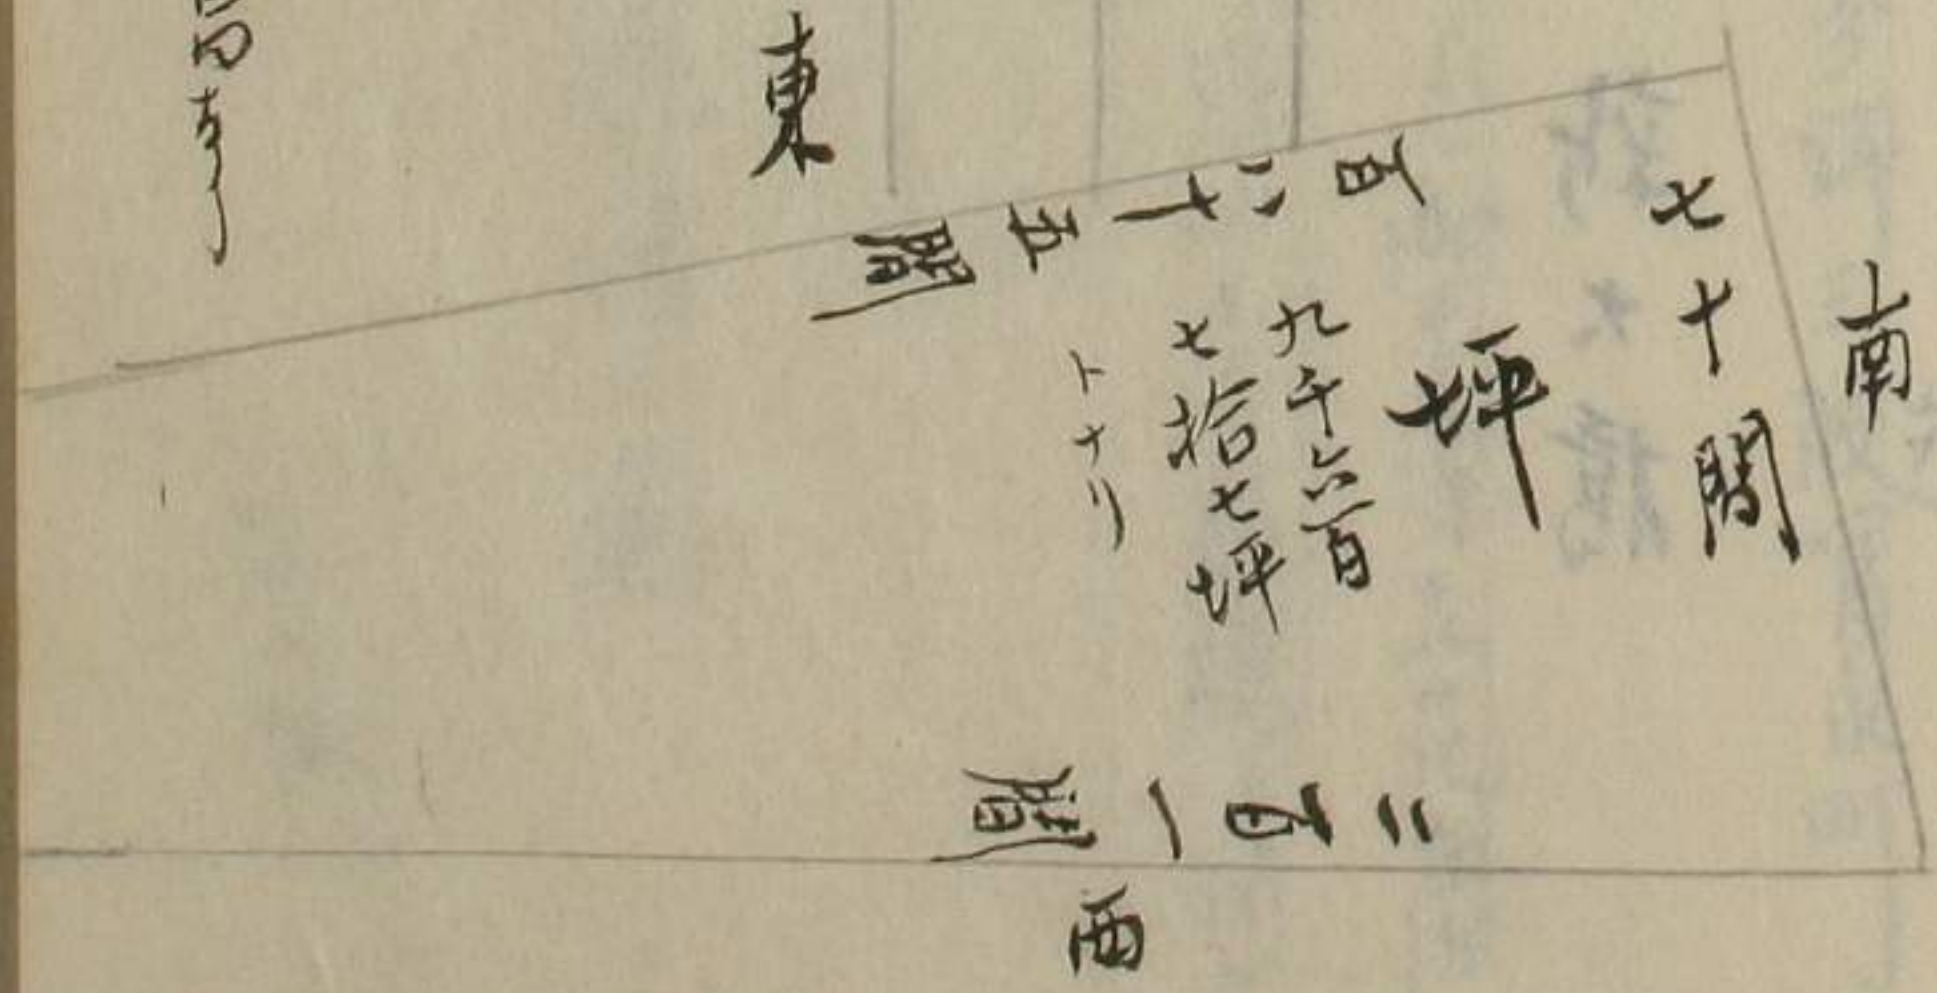 南
七十間
坪
九千六百
七拾七坪
トナリ
百八十五間
東
二百一間
西